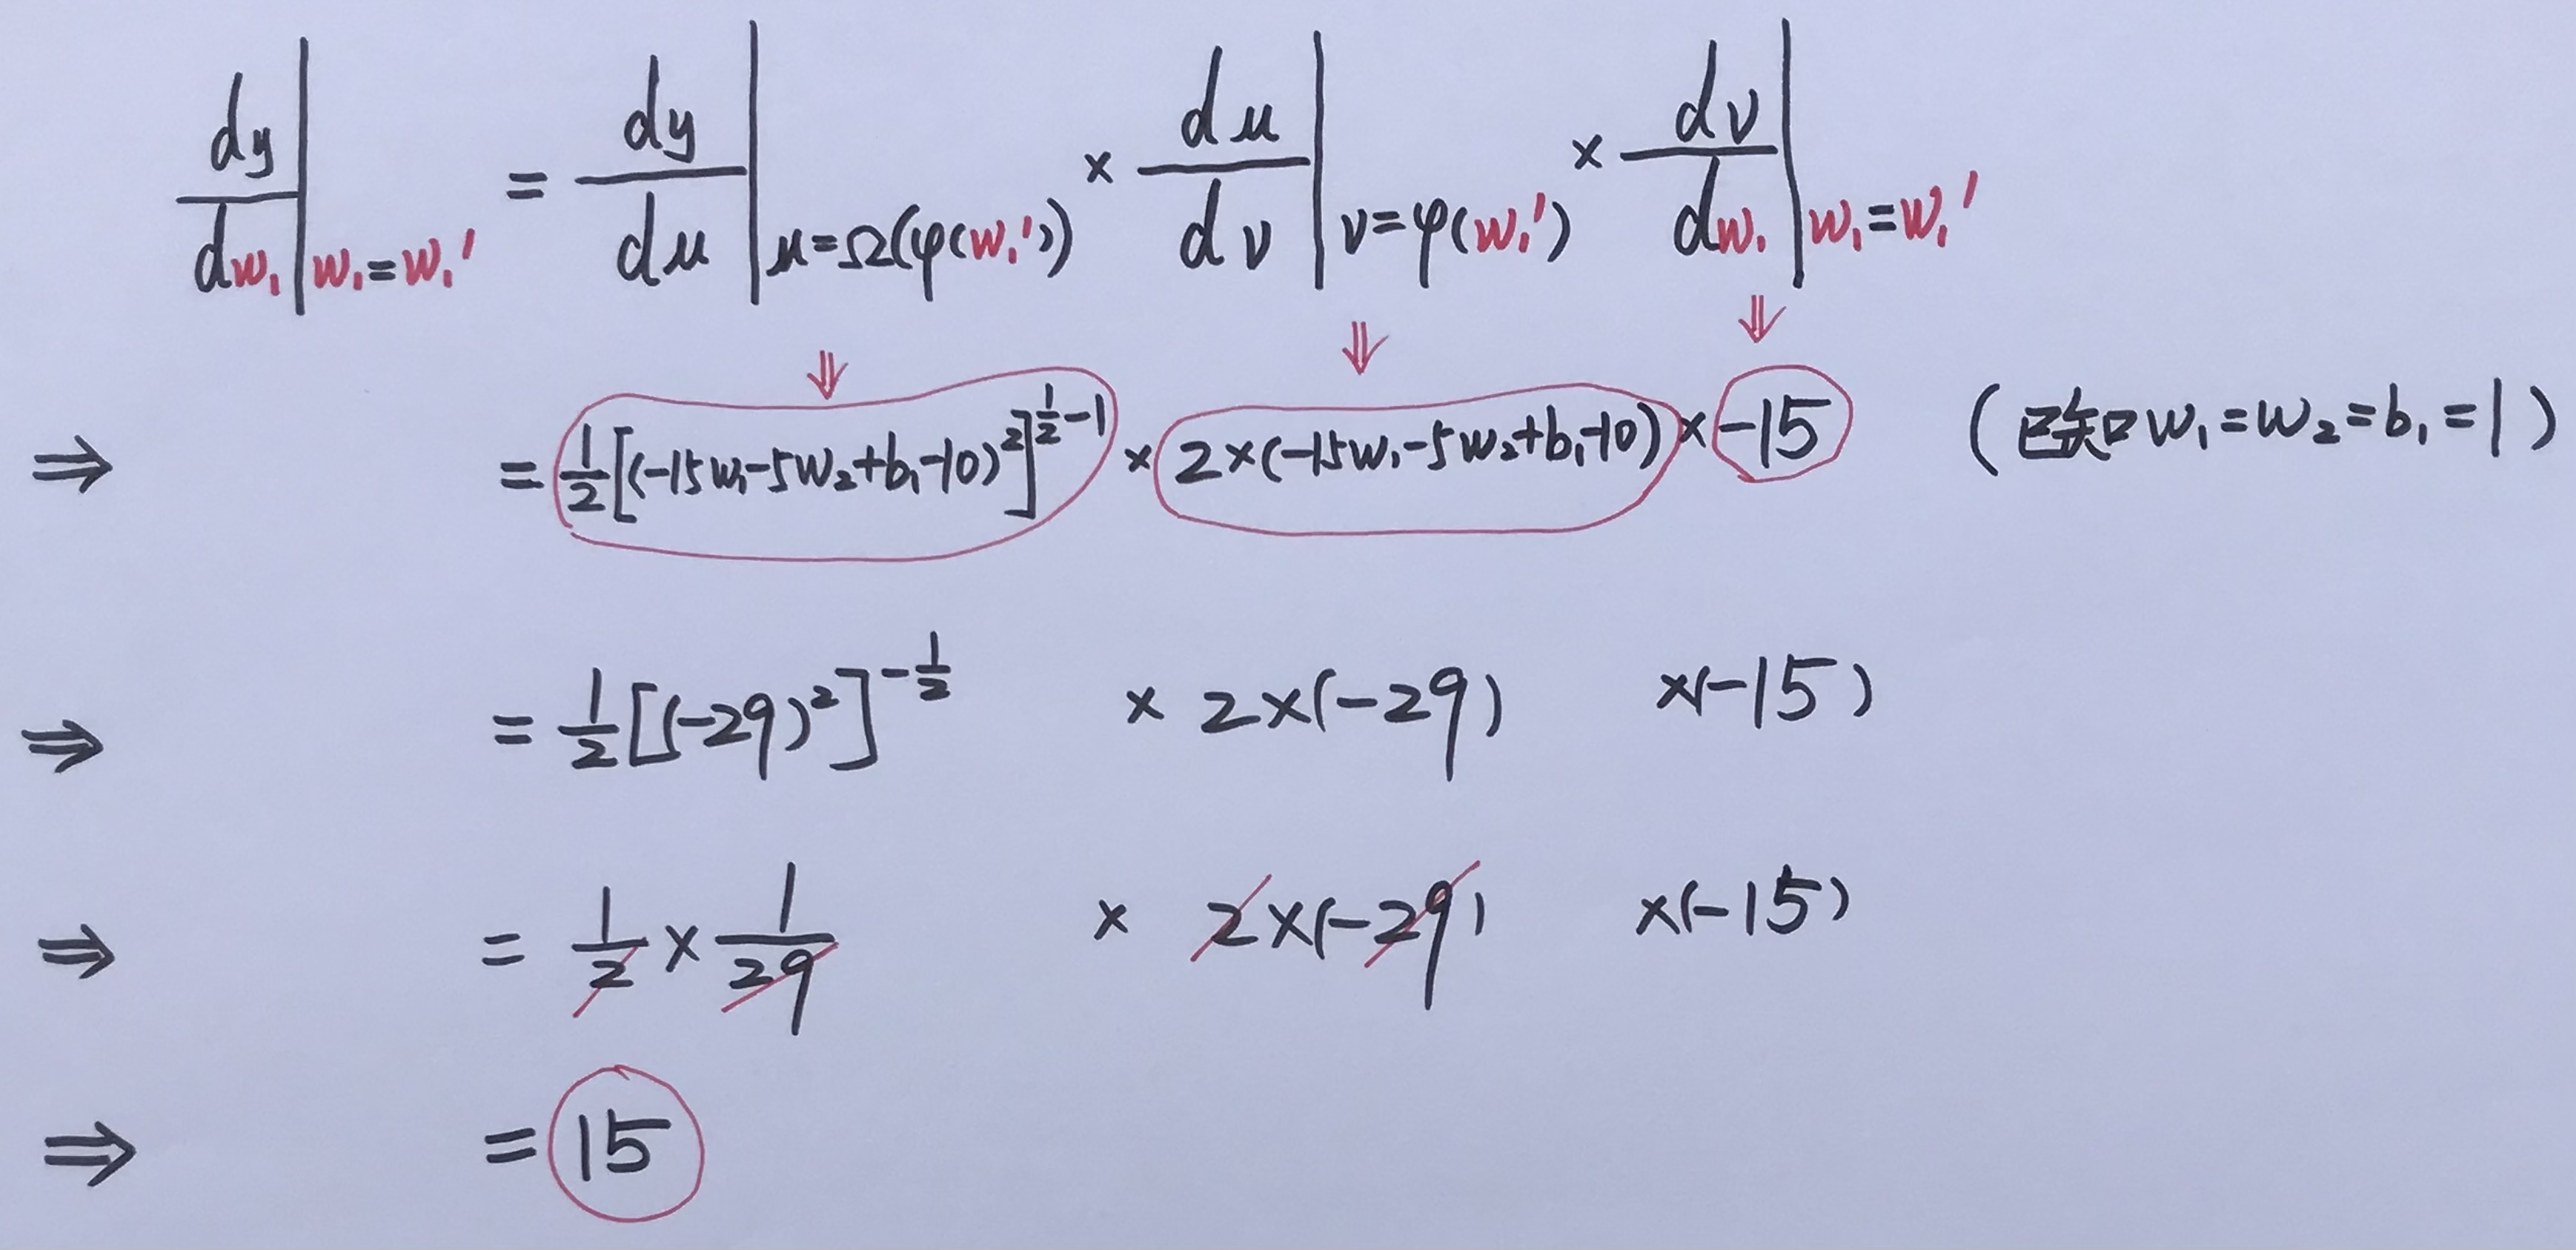 dy/dw₁|w₁=w₁' = dy/dμ|μ=Ω(φ(w₁')) × dμ/dν|ν=φ(w₁') × dν/dw₁|w₁=w₁'
⇓ ⇓ ⇓
⇒ = 1/2[(-15w₁-5w₂+b₁-10)²]^(1/2-1) × 2×(-15w₁-5w₂+b₁-10) × -15 (已知w₁=w₂=b₁=1)
⇒ = 1/2[(-29)²]^(-1/2) × 2×(-29) ×(-15)
⇒ = 1/2 × 1/29 × 2×(-29) ×(-15)
⇒ = 15